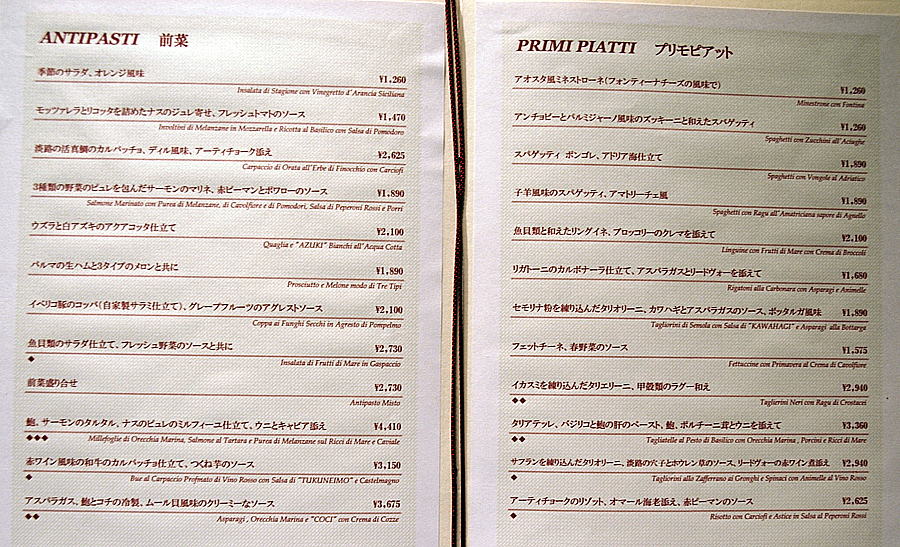 ANTIPASTI 前菜
季節のサラダ、オレンジ風味 ¥1,260
Insalata di Stagione con Vinegretto d'Arancia Siciliana
モッツァレラとリコッタを詰めたナスのジュレ寄せ、フレッシュトマトのソース ¥1,470
Involtini di Melanzane in Mozzarella e Ricotta al Basilico con Salsa di Pomodoro
淡路の活真鯛のカルパッチョ、ディル風味、アーティチョーク添え ¥2,625
Carpaccio di Orata all'Erbe di Finocchio con Carciofi
3種類の野菜のピュレを包んだサーモンのマリネ、赤ピーマンとポワローのソース ¥1,890
Salmone Marinato con Purea di Melanzane, di Cavolfiore e di Pomodori, Salsa di Peperoni Rossi e Porri
ウズラと白アズキのアクアコッタ仕立て ¥2,100
Quaglia e "AZUKI" Bianchi all'Acqua Cotta
パルマの生ハムと3タイプのメロンと共に ¥1,890
Prosciutto e Melone modo di Tre Tipi
イベリコ豚のコッパ(自家製サラミ仕立て)、グレープフルーツのアグレストソース ¥2,100
Coppa ai Funghi Secchi in Agresto di Pompelmo
魚貝類のサラダ仕立て、フレッシュ野菜のソースと共に ¥2,730
◆ Insalata di Frutti di Mare in Gaspaccio
前菜盛り合せ ¥2,730
Antipasto Misto
鮑、サーモンのタルタル、ナスのピュレのミルフィーユ仕立て、ウニとキャビア添え ¥4,410
◆◆◆ Millefoglie di Orecchia Marina, Salmone al Tartara e Purea di Melanzane sul Ricci di Mare e Caviale
赤ワイン風味の和牛のカルパッチョ仕立て、つくね芋のソース ¥3,150
◆ Bue al Carpaccio Profmato di Vino Rosso con Salsa di "TUKUNEIMO" e Castelmagno
アスパラガス、鮑とコチの冷製、ムール貝風味のクリーミーなソース ¥3,675
◆◆ Asparagi , Orecchia Marina e "COCI" con Crema di Cozze
PRIMI PIATTI プリモピアット
アオスタ風ミネストローネ(フォンティーナチーズの風味で) ¥1,260
Minestrone con Fontina
アンチョビーとパルミジャーノ風味のズッキーニと和えたスパゲッティ ¥1,260
Spaghetti con Zucchini all'Aciughe
スパゲッティ ボンゴレ、アドリア海仕立て ¥1,890
Spaghetti con Vongole al Adriatico
子羊風味のスパゲッティ、アマトリーチェ風 ¥1,890
Spaghetti con Ragu all'Amatriciana sapore di Agnello
魚貝類と和えたリングイネ、ブロッコリーのクレマを添えて ¥2,100
Linguine con Frutti di Mare con Crema di Broccoli
リガトーニのカルボナーラ仕立て、アスパラガスとリードヴォーを添えて ¥1,680
Rigatoni alla Carbonara con Asparagi e Animelle
セモリナ粉を練り込んだタリオリーニ、カワハギとアスパラガスのソース、ボッタルガ風味 ¥1,890
Tagliorini di Semola con Salsa di "KAWAHAGI" e Asparagi alla Bottarga
フェットチーネ、春野菜のソース ¥1,575
Fettuccine con Primavera al Crema di Cavolfiore
イカスミを練り込んだタリエリーニ、甲殻類のラグー和え ¥2,940
◆◆ Taglierini Neri con Ragu di Crostacei
タリアテッレ、バジリコと鮑の肝のペースト、鮑、ポルチーニ茸とウニを添えて ¥3,360
◆◆ Tagliatelle al Pesto di Basilico con Orecchia Marina , Porcini e Ricci di Mare
サフランを練り込んだタリオリーニ、淡路の穴子とホウレン草のソース、リードヴォーの赤ワイン煮添え ¥2,940
◆ Tagliorini allo Zafferano ai Gronghi e Spinaci con Animelle al Vino Rosso
アーティチョークのリゾット、オマール海老添え、赤ピーマンのソース ¥2,625
◆ Risotto con Carciofi e Astice in Salsa al Peperoni Rossi